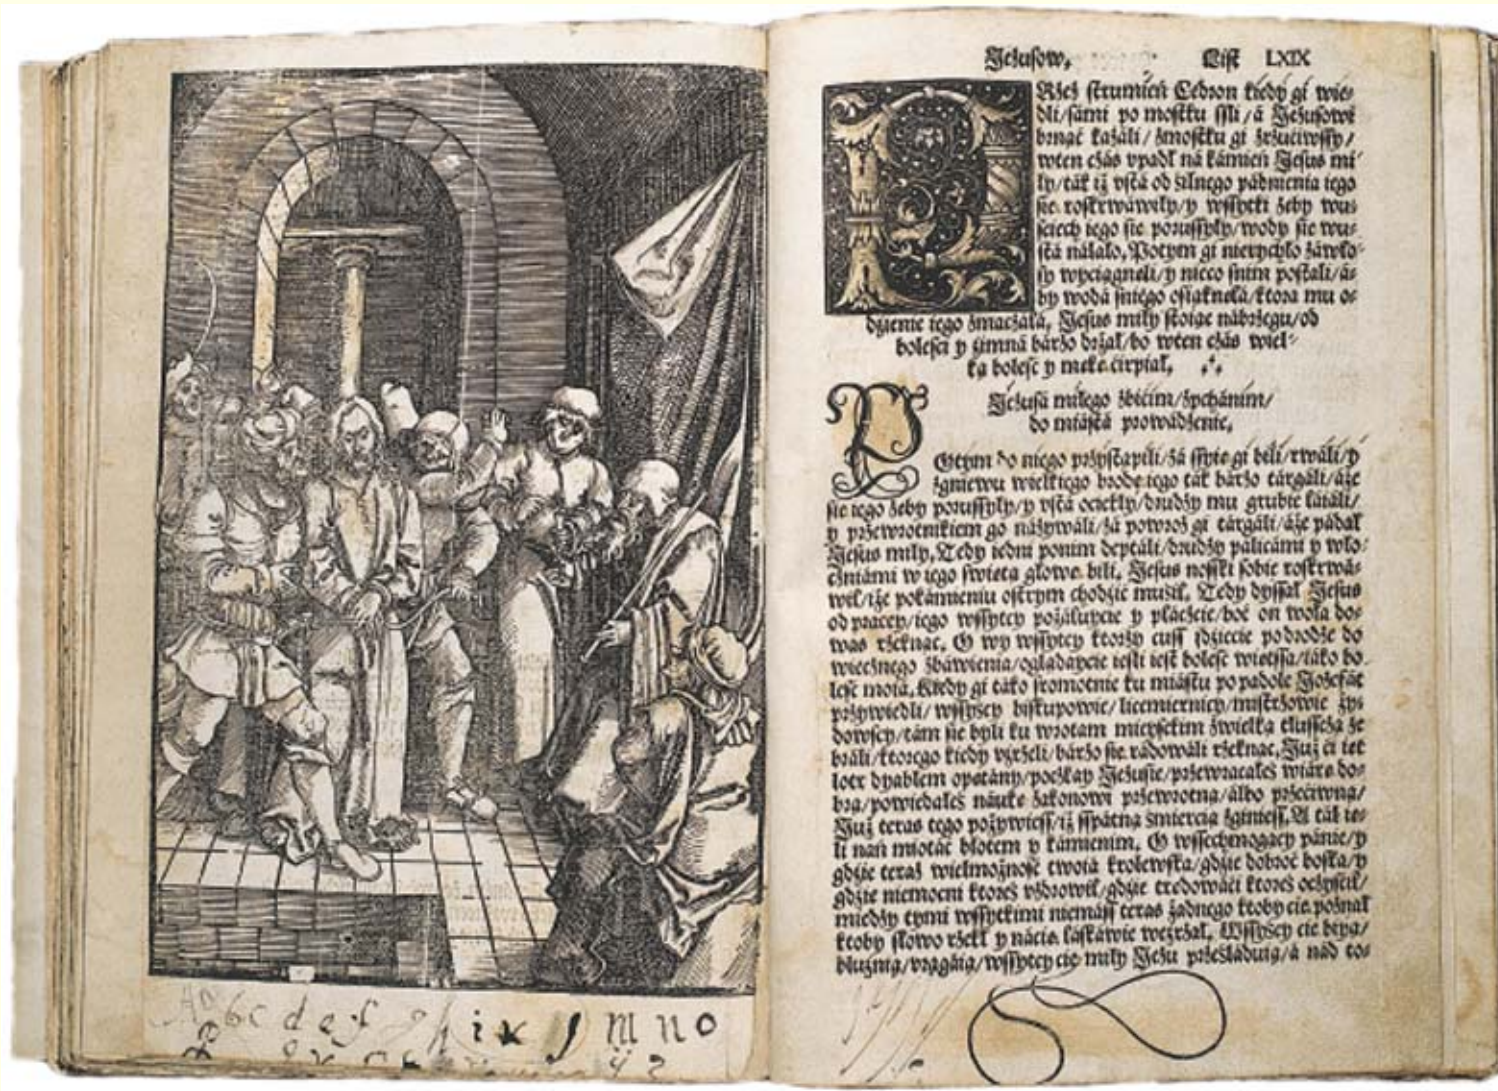 A b c d e f g h i k l m n o
Jezusow. List LXIX
PRzez strumień Cedron kiedy gi wie⸗
dli/sámi po mostku ssli/á Jezusowi
brnąć kazáli/zmostku gi zrzuciwssy/
wten czás vpadł ná kámień Jesus mi⸗
ły/ták iż vstá od silnego pádnienia iego
sie roskrwáwiły/y wssytki zęby wu⸗
sciech iego sie porussyły/wody sie wu⸗
stá nálało. Potym gi nierychło záwło⸗
sy wyciągnęli/y nieco snim postali/á⸗
by wodá sniego ościáknęłá/ktora mu o⸗
dzienie iego zmaczáłá. Jesus miły stoiąc nábrzegu/od
bolesci y zimná bárzo drżał/bo wten czás wiel⸗
ką bolesć y mękę cirpiał.
Jezusá miłego biciim/zpchánim/
do miástá prowádzenie.
POtym do niego przystąpili/zá ssyię gi bili/rwáli/y
zgniewu wielkiego brodę iego ták bárzo tárgáli/áże
sie iego zęby porussyły/y vstá ociekły/drudzy mu grubie łáiáli/
y przewrotnikiem go názywáli/zá powroz gi tárgáli/áże pádał
Jesus miły. Tedy iedni ponim deptáli/drudzy pálicámi y wło⸗
czniámi w iego swiętą głowę bili. Jesus nożki sobie roskrwá⸗
wił/iże pokámieniu ostrym chodzić musił. Tedy dyssał Jesus
od pracey/iego wssytcy pożáłuycie y płáczcie/boć on woła do⸗
was rzeknąc. O wy wssytcy ktorzy tuss idziecie podrodze do
wiecznego zbáwienia/oglądaycie iesli iest bolesć więtssa/iáko bo⸗
lesć moiá. Kiedy gi táko sromotnie ku miástu po padole Jozefát
przywiedli/wssyscy biskupowie/licemiernicy/mistrzowie ży⸗
dowscy/tám sie byli ku wrotam mieyskim zwielką tłussczą ze
bráli/ktorego kiedy vyrzeli/bárzo sie rádowáli rzeknąc. Już ci iet
łotr dyabłem opętány/poczkay Jezusie/przewracałeś wiárę do⸗
brą/powiedałeś náukę zakonowi przewrotną/álbo przeciwną/
Już teras tego pożywiess/iż sspátną śmiercią zginiess. A ták ię⸗
li nań miotáć błotem y kámienim. O wssechmogący pánie/y
gdzie teraz wielmożność twoiá krolewska/gdzie dobroć boska/y
gdzie niemocni ktoreś vzdrowił/gdzie trędowáci ktoreś oczyścił/
między tymi wssytkimi niemáss teras żadnego ktoby cie poznał
ktoby słowo rzekł y nácię łáskáwie weyrzał. Wssyscy cię biyą/
bluźnią/vrągáią/wssytcy cię miły Jezu prześláduią/á nád to⸗